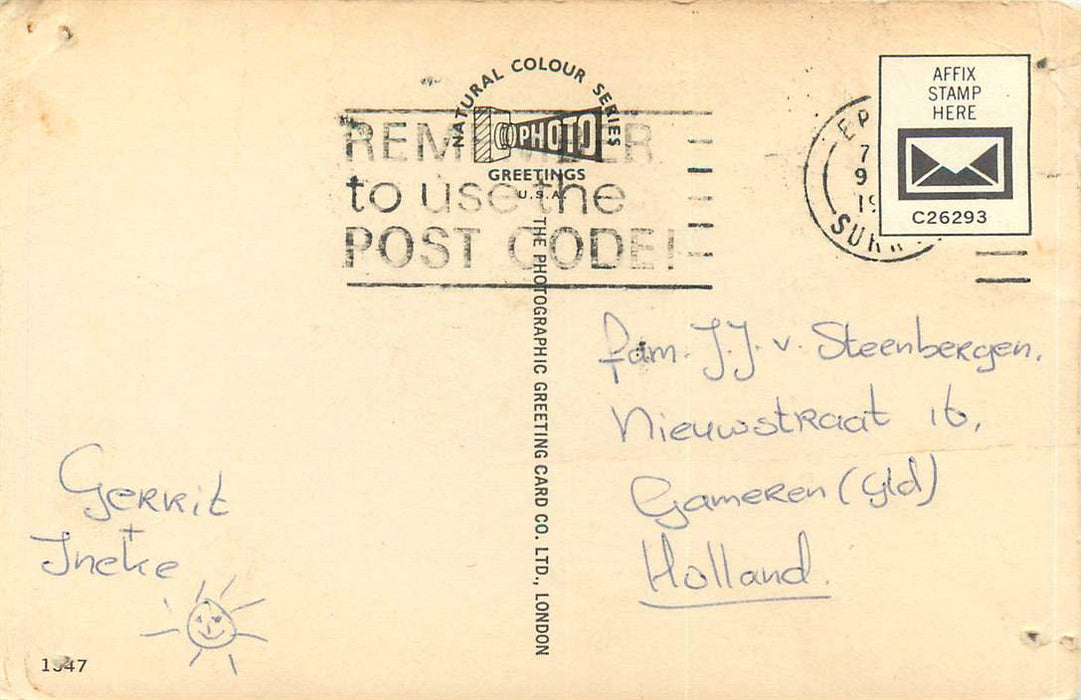 NATURAL COLOUR SERIES
PHOTO
GREETINGS
U.S.A.
REMEMBER
to use the
POST CODE!
AFFIX
STAMP
HERE
C26293
THE PHOTOGRAPHIC GREETING CARD CO. LTD., LONDON
fam. J.J. v. Steenbergen.
Nieuwstraat 16,
Gameren (Gld)
Holland.
Gerrit
+
Ineke